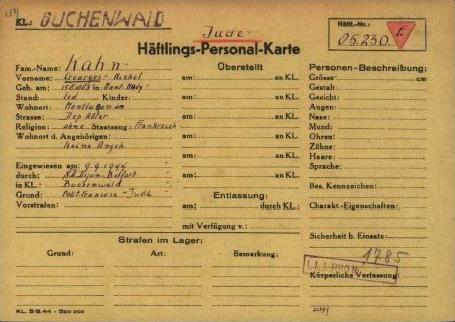 KL: BUCHENWALD
Jude
Häftl.-Nr.:
Häftlings-Personal-Karte
F
Fam.-Name: Kahn
Überstellt
Personen-Beschreibung:
Vorname: Georges-Michel
am: an KL.
Grösse: cm
Geb. am: in
Gestalt:
Stand: led. Kinder:
am: an KL.
Gesicht:
Wohnort:
Augen:
Strasse: Dep Allier
am: an KL.
Nase:
Religion: ohne Staatsang: Frankreich
Mund:
Wohnort d. Angehörigen:
am: an KL.
Ohren:
Keine Angeh.
Zähne:
am: an KL.
Haare:
Eingewiesen am: 9.9.1944
Sprache:
durch: Belfort
am: an KL.
in KL.: Buchenwald
Bes. Kennzeichen:
Grund: Polit. Jude
Entlassung:
Vorstrafen:
am: durch KL.:
Charakt.-Eigenschaften:
mit Verfügung v.:
Strafen im Lager:
Sicherheit b. Einsatz:
Grund: Art: Bemerkung:
1785
Körperliche Verfassung:
KL. 5/6.44 - 500 000